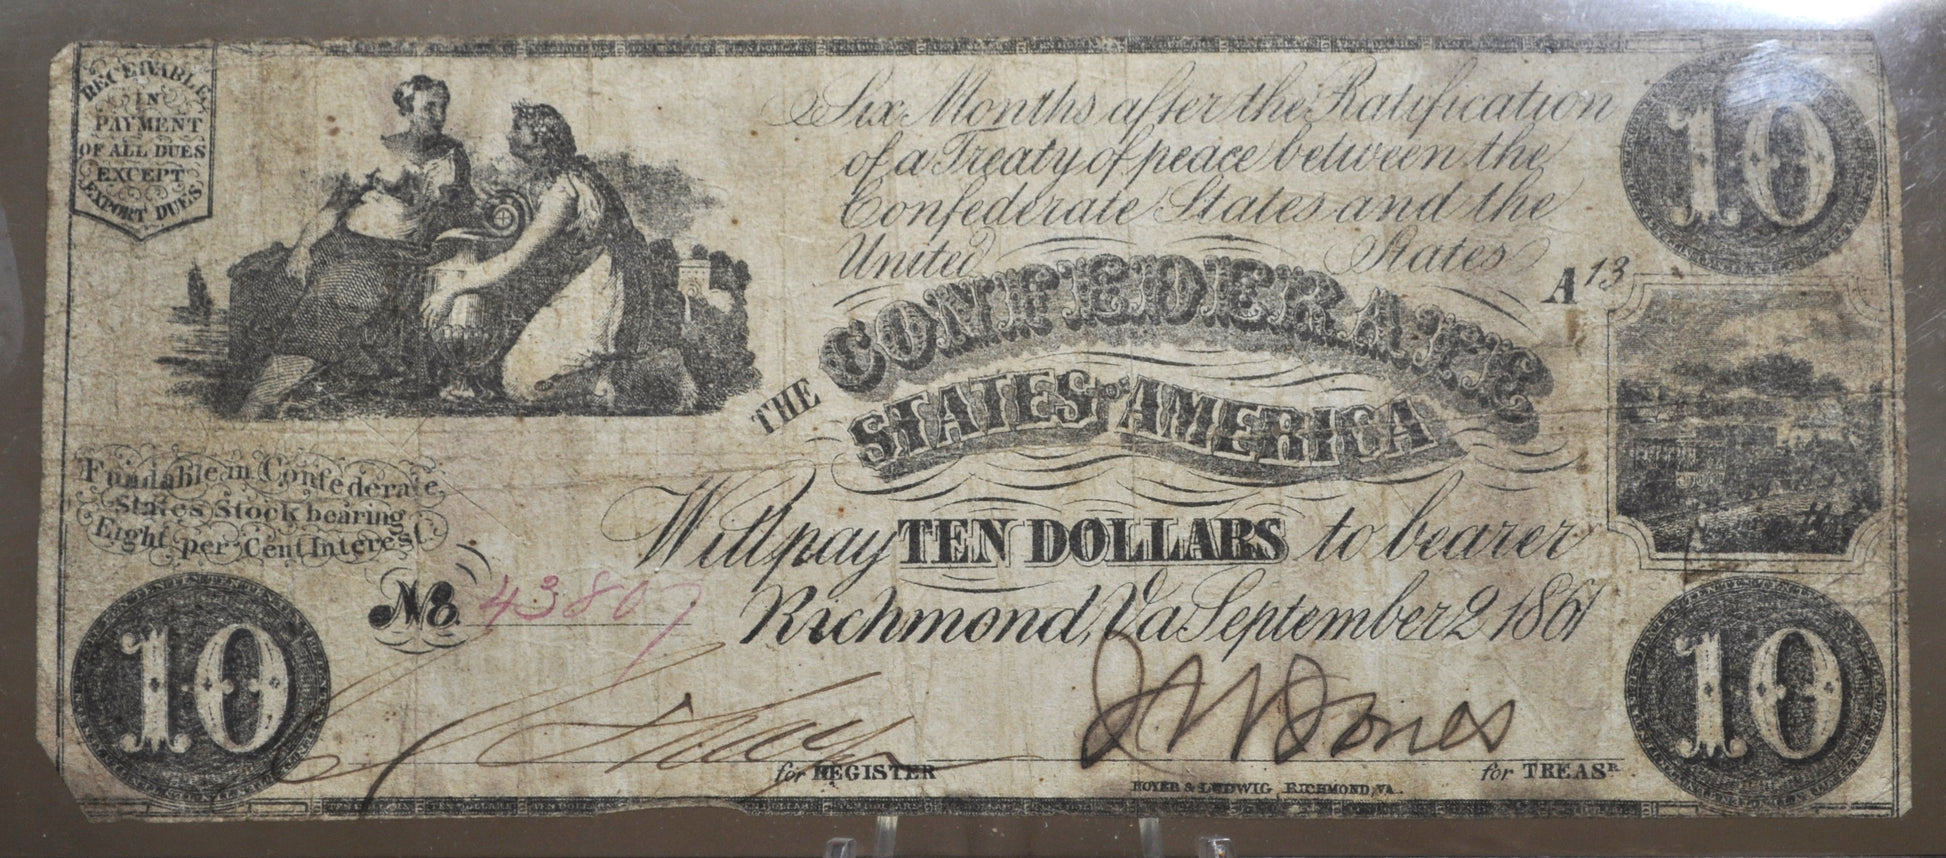 RECEIVABLE
IN
PAYMENT
OF ALL DUES
EXCEPT
EXPORT DUES
Six Months after the Ratification
of a Treaty of peace between the
Confederate States and the
United States
10
A 13
THE CONFEDERATE
STATES OF AMERICA
Fundable in Confederate
States Stock bearing
Eight per Cent Interest
Will pay TEN DOLLARS to bearer
No. 43807
Richmond, Va September 2 1861
10
10
J W Jones
for REGISTER
for TREASR.
HOYER & LUDWIG, RICHMOND, VA.